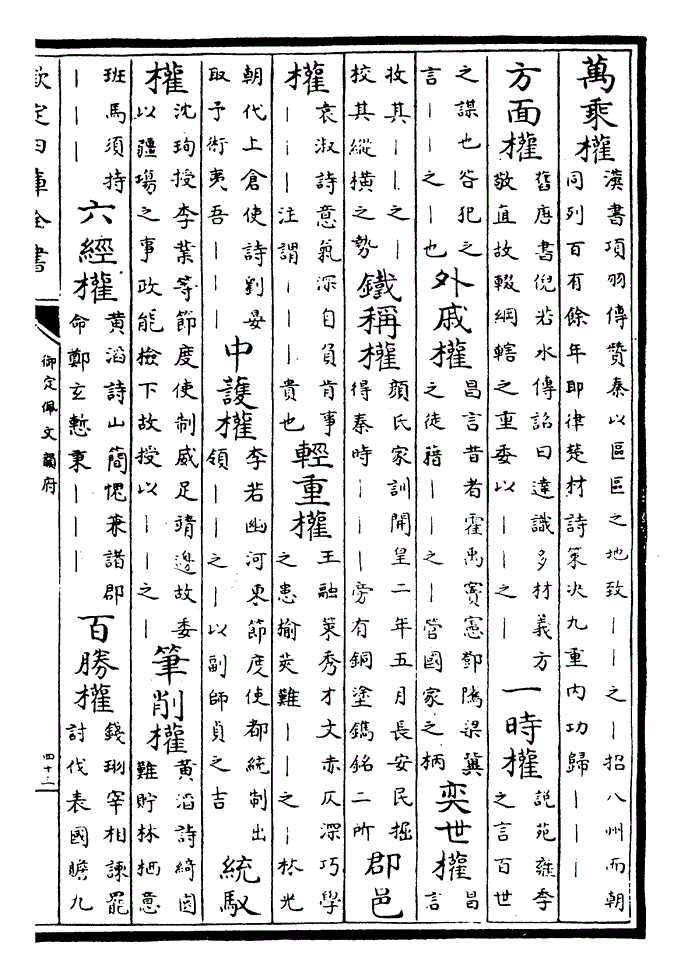 萬乘權
漢書項羽傳贊秦以區區之地致丨丨之丨招八州而朝
同列百有餘年耶律楚材詩策決九重内功歸丨丨丨
方面權
舊唐書倪若水傳詔曰達識多材義方
敬直故輟綱轄之重委以丨丨之丨
一時權
説苑雍季
之言百世
之謀也咎犯之
言丨丨之丨也
外戚權
昌言昔者霍禹竇憲鄧隲梁冀
之徒藉丨丨之丨管國家之柄
奕世權
昌
言
收其丨丨之丨
校其縱橫之勢
鐵稱權
顔氏家訓開皇二年五月長安民掘
得秦時丨丨丨旁有銅塗鐫銘二所
郡邑
權
袁淑詩意氣深自負肯事
丨丨丨注謂丨丨丨貴也
輕重權
王融策秀才文赤仄深巧學
之患榆莢難丨丨之丨林光
朝代上倉使詩劉晏
取予術夷吾丨丨丨
中護權
李若幽河東節度使都統制出
領丨丨之丨以副師貞之吉
統馭
權
沈珣授李業等節度使制威足靖邊故委
以疆埸之事政能撿下故授以丨丨之丨
筆削權
黄滔詩綺園
難貯林栖意
班馬須持
丨丨丨
六經權
黄滔詩山簡愧兼諸郡
命鄭玄慙秉丨丨丨
百勝權
錢珝宰相諫罷
討伐表國瞻九
欽定四庫全書
御定佩文韻府
四十三